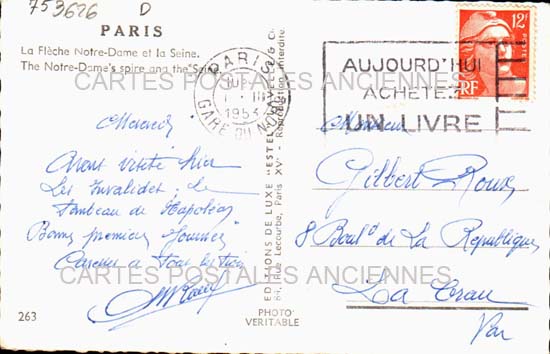 753626 D
PARIS
La Flèche Notre-Dame et la Seine.
The Notre-Dame's spire and the Seine.
Mercredi
Avons visité hier
Les Invalides, le
Tombeau de Napoléon
Bonne première journée
Caresses à tous les trois
263
EDITIONS DE LUXE "ESTEL"
81, Rue Lecourbe, Paris XV - Reproduction interdite.
PHOTO
VERITABLE
PARIS
1953
GARE DU NORD
AUJOURD'HUI
ACHETEZ
UN LIVRE
12F
RF
Monsieur
Gilbert Roux
8 Boul d de La République
La Crau
Var
CARTES POSTALES ANCIENNES
CARTES POSTALES ANCIENNES
CARTES POSTALES ANCIENNES